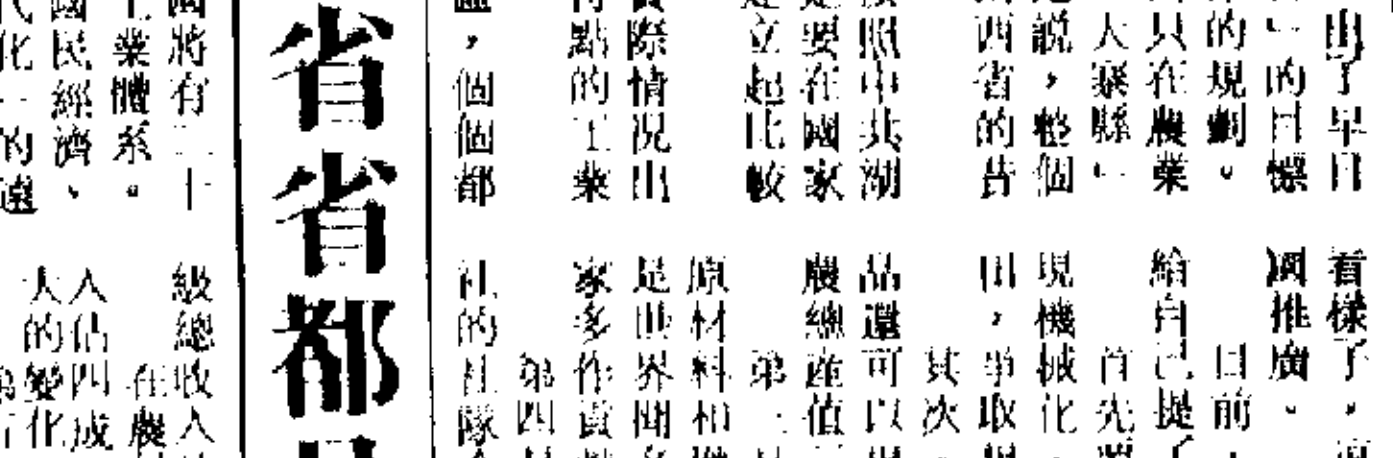 出了早日
」的目標
的規劃。
只在農業
大寨縣」
說，整個
西省的昔
照中共湖
要在國家
立起比較
際情况出
點的工業
，個個都
看樣了，
推廣。
目前，
給自己提了
首先
現機械化
田，爭取
其次，
品還可以
農總產值
第
原材料和
是世界聞名
家多作貢
第四
社的社隊
省省都
國將有二十
業體系。
國民經濟、
代化」的遠
級總收入
在農
入佔四成
大的變化